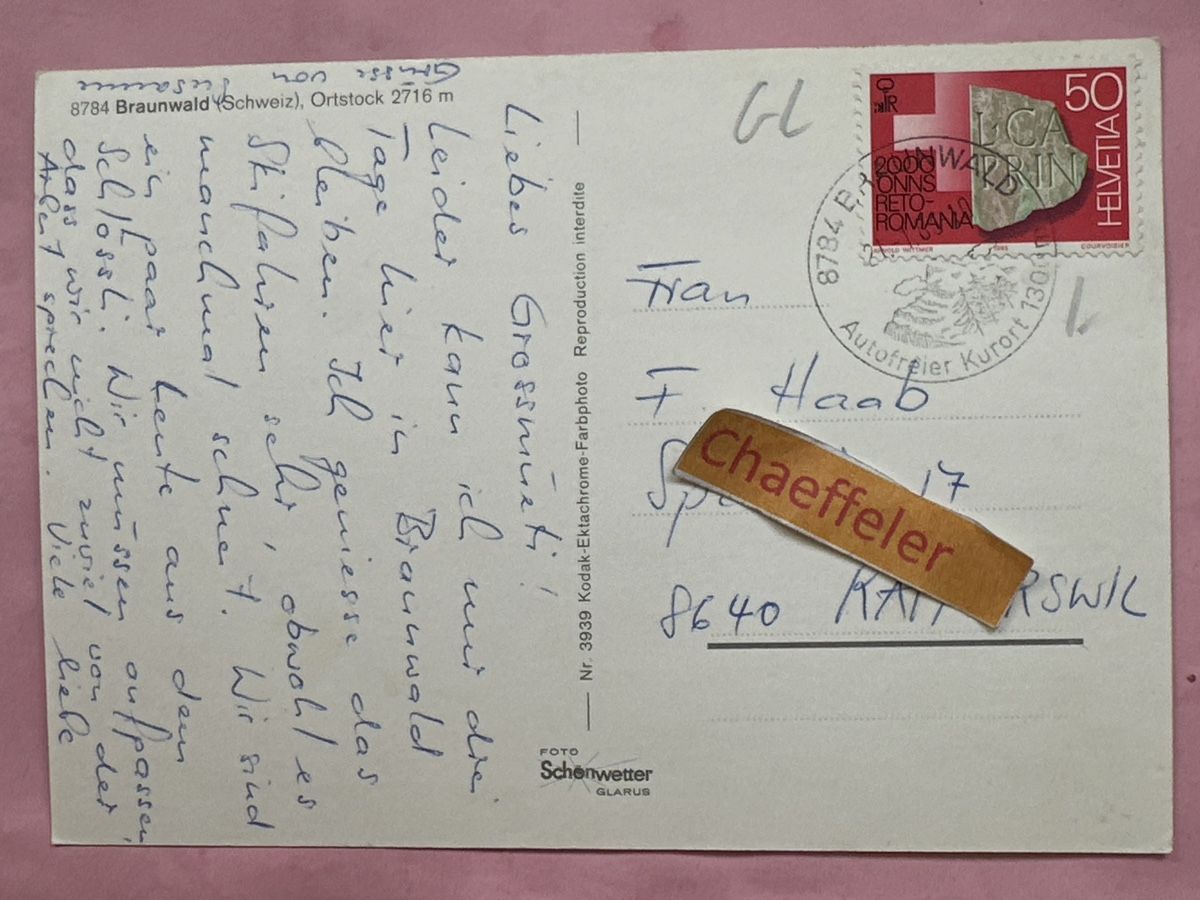 8784 Braunwald (Schweiz), Ortstock 2716 m
Liebes Grossmüeti!
Leider kann ich nur drei
Tage hier in Braunwald
bleiben. Ich geniesse das
Skifahren sehr, obwohl es
manchmal schneit. Wir sind
ein paar Leute aus dem
Schlössli. Wir müssen aufpassen,
dass wir nicht zuviel von der
Arbeit sprechen. Viele liebe
Grüsse von
Susanne
Nr. 3939 Kodak-Ektachrome-Farbphoto Reproduction interdite
FOTO
Schönwetter
GLARUS
GL
50
HELVETIA
2000
ONNS
RETO-
ROMANIA
ARNOLD WITTMER 1985 COURVOISIER
8784 BRAUNWALD
Autofreier Kurort 1300 m
Frau
F. Haab
Sp 17
Chaeffeler
8640 RAPPERSWIL